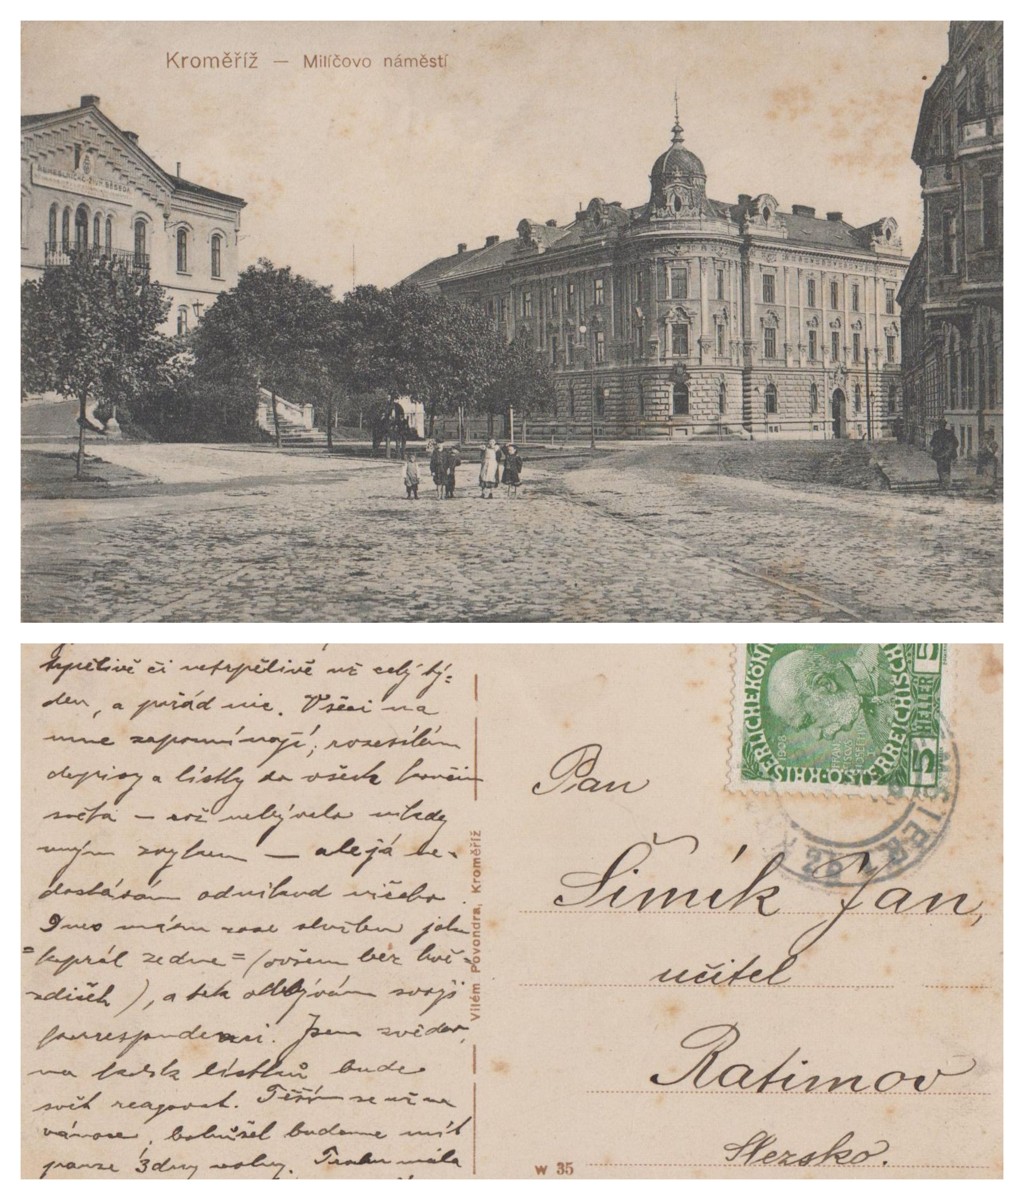 Kroměříž — Milíčovo náměstí
trpělivě či netrpělivě už celý tý-
den, a pořád nic. Všeci na
mne zapomínají; rozesílám
dopisy a lístky do všech končin
světa — což nebývalo nikdy
mým zvykem — ale já ne-
dostávám odnikud ničeho.
Dnes mám zase službu jako
"kaprál ze dne" (ovšem bez hvě-
zdiček), a tak odbývám svoji
korrespondenci. Jsem zvědav,
na kolik lístků bude
svět reagovat. Těším se už na
vánoce, bohužel budeme mít
pouze 3 dny volny. Trochu málo
Vilém Povondra, Kroměříž
KAISERLICHEKÖNIG
ÖSTERREICHISCH
5 HELLER 5
1908
Pan
Šimík Jan,
učitel
Ratimov
Slezsko.
W 35